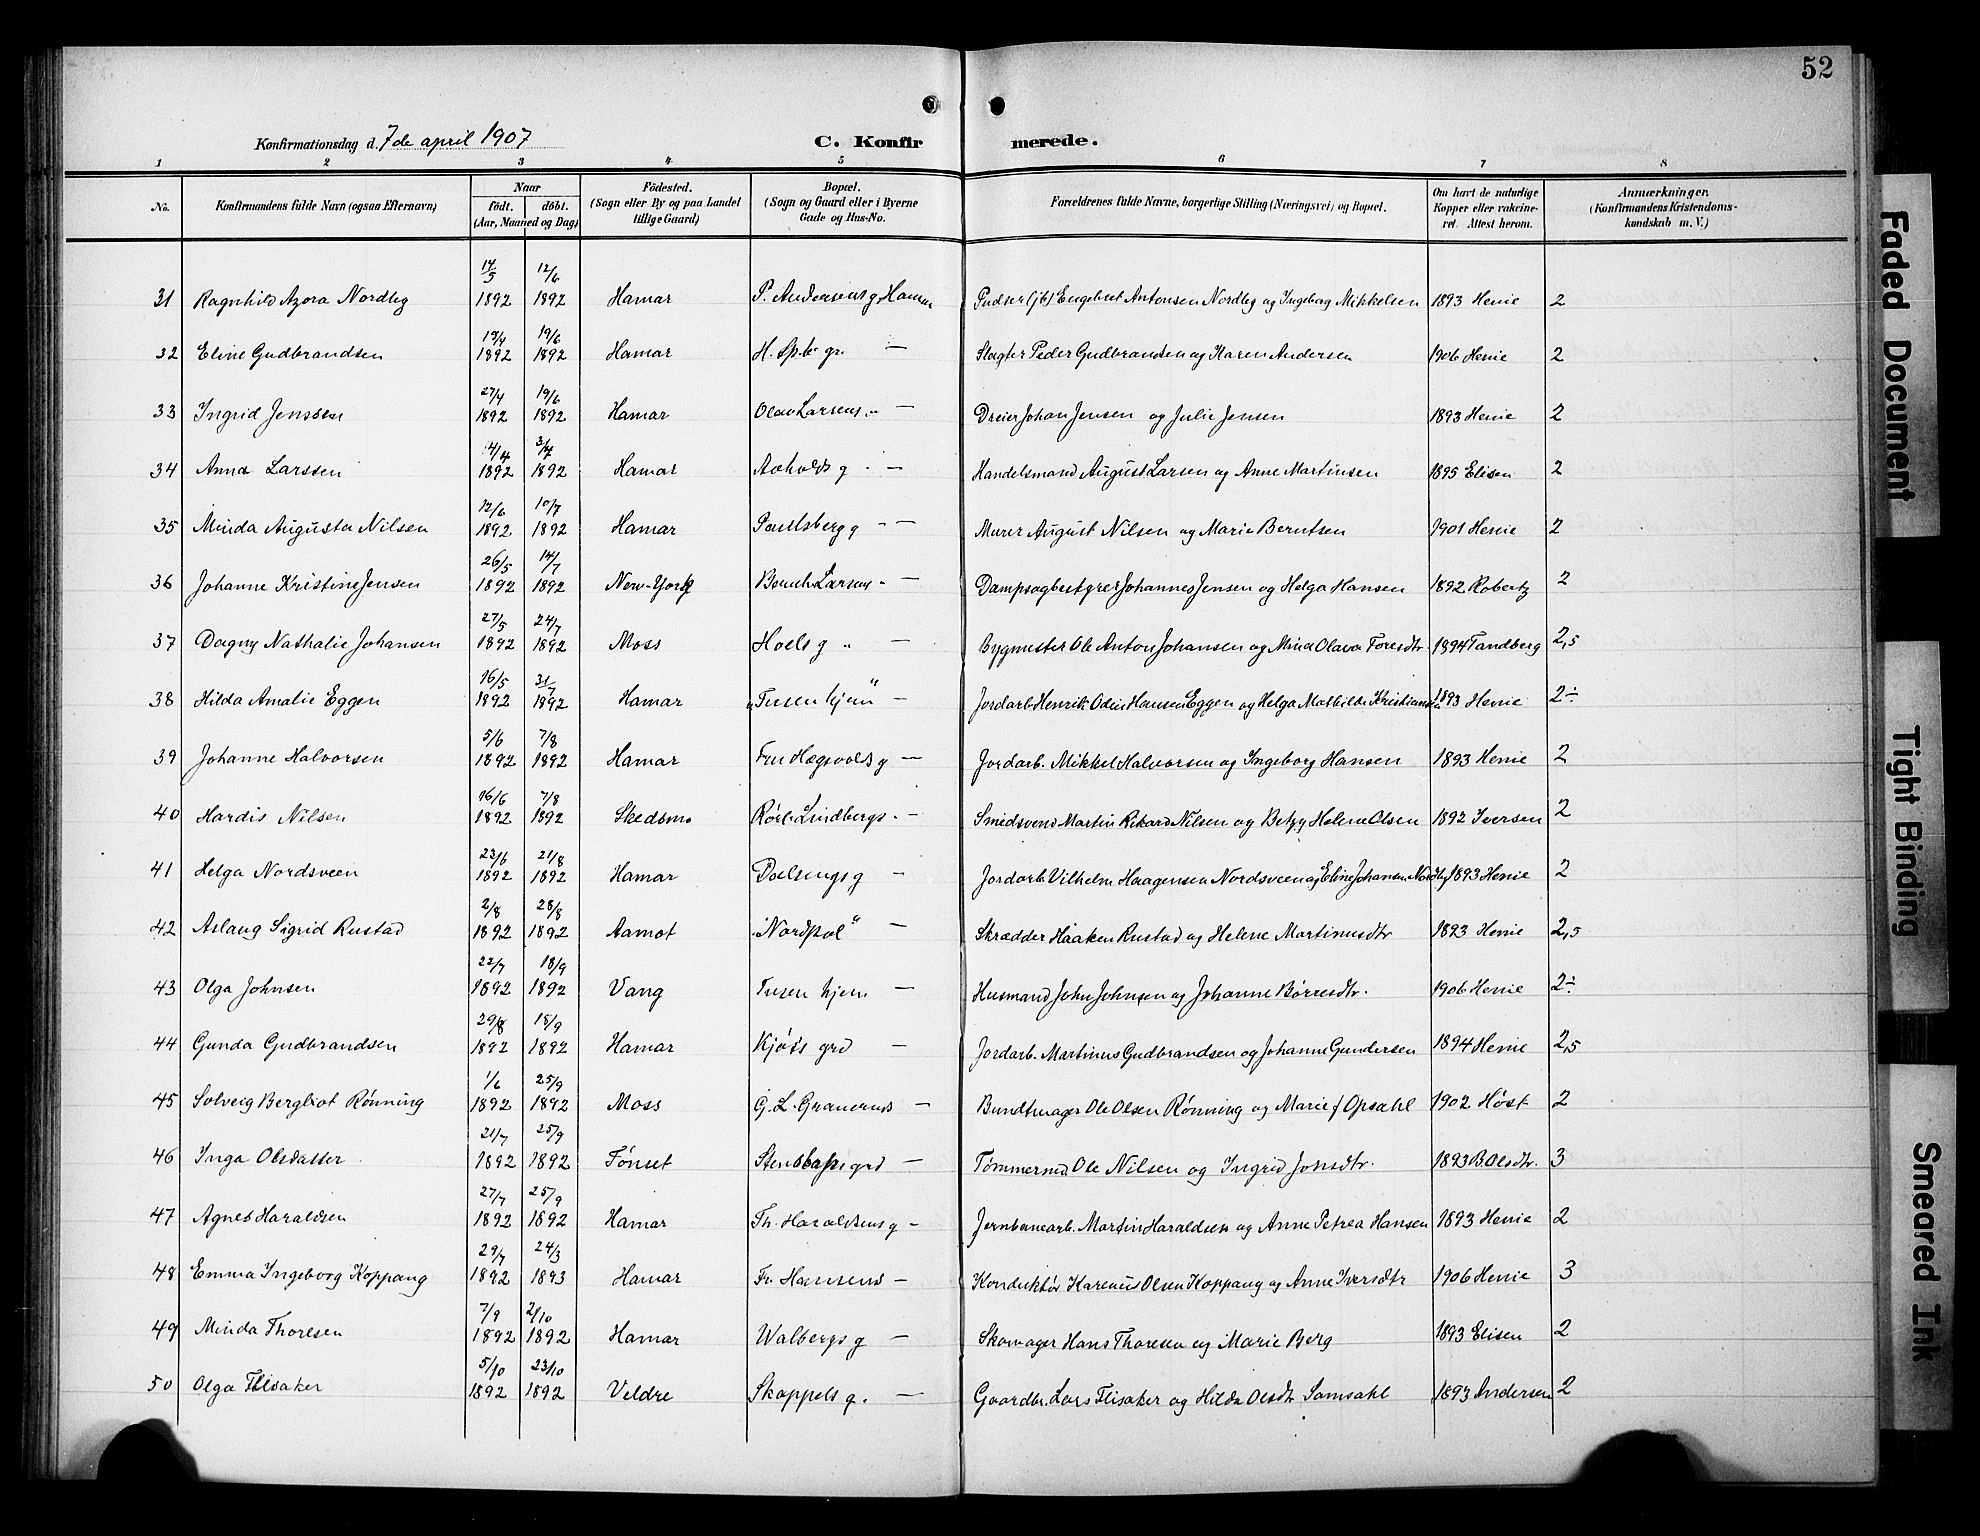 52
Konfirmationsdag d. 7de april 1907 C. Konfirmerede.
1 2 3 4 5 6 7 8
No. Konfirmandens fulde Navn (ogsaa Efternavn) Naar født. døbt. (Aar, Maaned og Dag) Fødested. (Sogn eller By og paa Landet tillige Gaard) Bopæl. (Sogn og Gaard eller i Byerne Gade og Hus-No. Forældrenes fulde Navne, borgerlige Stilling (Næringsvei) og Bopæl. Om havt de naturlige Kopper eller vakcineret. Attest herom. Anmærkninger. (Konfirmandens Kristendomskundskab m. V.)
31 Ragnhild Azora Nordby 14/5 1892 12/6 1892 Hamar P. Andersens g. Hamar Pudser (jb) Engebret Antonsen Nordby og Ingeborg Mikkelsen 1893 Henie 2
32 Eline Gudbrandsen 19/4 1892 19/6 1892 Hamar H. Sp.b. gr. — Slagter Peder Gudbrandsen og Karen Andersen 1906 Henie 2
33 Ingrid Jenssen 27/4 1892 19/6 1892 Hamar Olav Larsens „ — Dreier Johan Jensen og Julie Jensen 1893 Henie 2
34 Anna Larssen 4/4 1892 3/7 1892 Hamar g. — Handelsmand August Larsen og Anne Martinsen 1895 Elisen 2
35 Minda Augusta Nilsen 12/6 1892 10/7 1892 Hamar Poulsberg g — Murer August Nilsen og Marie Berntsen 1901 Henie 2
36 Johanne Kristine Jensen 26/5 1892 14/7 1892 New-York Larsens — Dampsagbestyrer Johannes Jensen og Helga Hansen 1892 Robertz 2
37 Dagny Nathalie Johansen 27/5 1892 24/7 1892 Moss Hoels g „ — Bygmester Ole Anton Johansen og Mina Olava Toresdtr 1894 Tandberg 2,5
38 Hilda Amalie Eggen 16/5 1892 31/7 1892 Hamar „Fusen hjem“ — Jordarb. Henrik Odin Hansen Eggen og Helga Mathilde Kristiansen 1893 Henie 2÷
39 Johanne Halvorsen 5/6 1892 7/8 1892 Hamar Fru Hægsvolds g — Jordarb. Mikkel Halvorsen og Ingeborg Hansen 1893 Henie 2
40 Hardis Nilsen 16/6 1892 7/8 1892 Skedsmo Rørl. Lindbergs. — Smedsvend Martin Rikard Nilsen og Betzy Helene Olsen 1892 Iversen 2
41 Helga Nordsveen 23/6 1892 21/8 1892 Hamar g — Jordarb. Vilhelm Haagensen Nordsveen og Eline Johansen Nordby 1893 Henie 2
42 Aslaug Sigrid Rustad 2/8 1892 28/8 1892 Aamot „Nordpol“ — Skrædder Haaken Rustad og Helene Martinusdtr 1893 Henie 2,5
43 Olga Johnsen 22/7 1892 18/9 1892 Vang Fusen hjem — Husmand John Johnsen og Johanne Børresdtr. 1906 Henie 2÷
44 Gunda Gudbrandsen 29/8 1892 18/9 1892 Hamar Kjøss grd — Jordarb. Martinus Gudbrandsen og Johanne Gundersen 1894 Henie 2,5
45 Solveig Bergliot Rønning 1/6 1892 25/9 1892 Moss G. L. Graneruds — Bundtmager Ole Olsen Rønning og Marie f Opsahl 1902 Høst 2
46 Inga Olsdatter 21/7 1892 25/9 1892 Tønset grd — Tømmermd. Ole Nilsen og Ingrid Jonsdtr. 1893 B. Olsdtr. 3
47 Agnes Haraldsen 27/7 1892 25/9 1892 Hamar Th. Haraldsens g — Jernbanearb. Martin Haraldsen og Anne Petrea Hansen 1893 Henie 2
48 Emma Ingeborg Koppang 29/7 1892 24/3 1893 Hamar Fr. Hansens — Konduktør Karenus Olsen Koppang og Anne Iversdtr 1906 Henie 3
49 Minda Thoresen 7/9 1892 2/10 1892 Hamar Walbergs g — Skomager Hans Thoresen og Marie Berg 1893 Elisen 2
50 Olga Flisaker 5/10 1892 23/10 1892 Veldre Skappels g. — Gaardbr. Lars Flisaker og Hilda Olsdtr Samsahl 1893 Andersen 2
Faded Document
Tight Binding
Smeared Ink